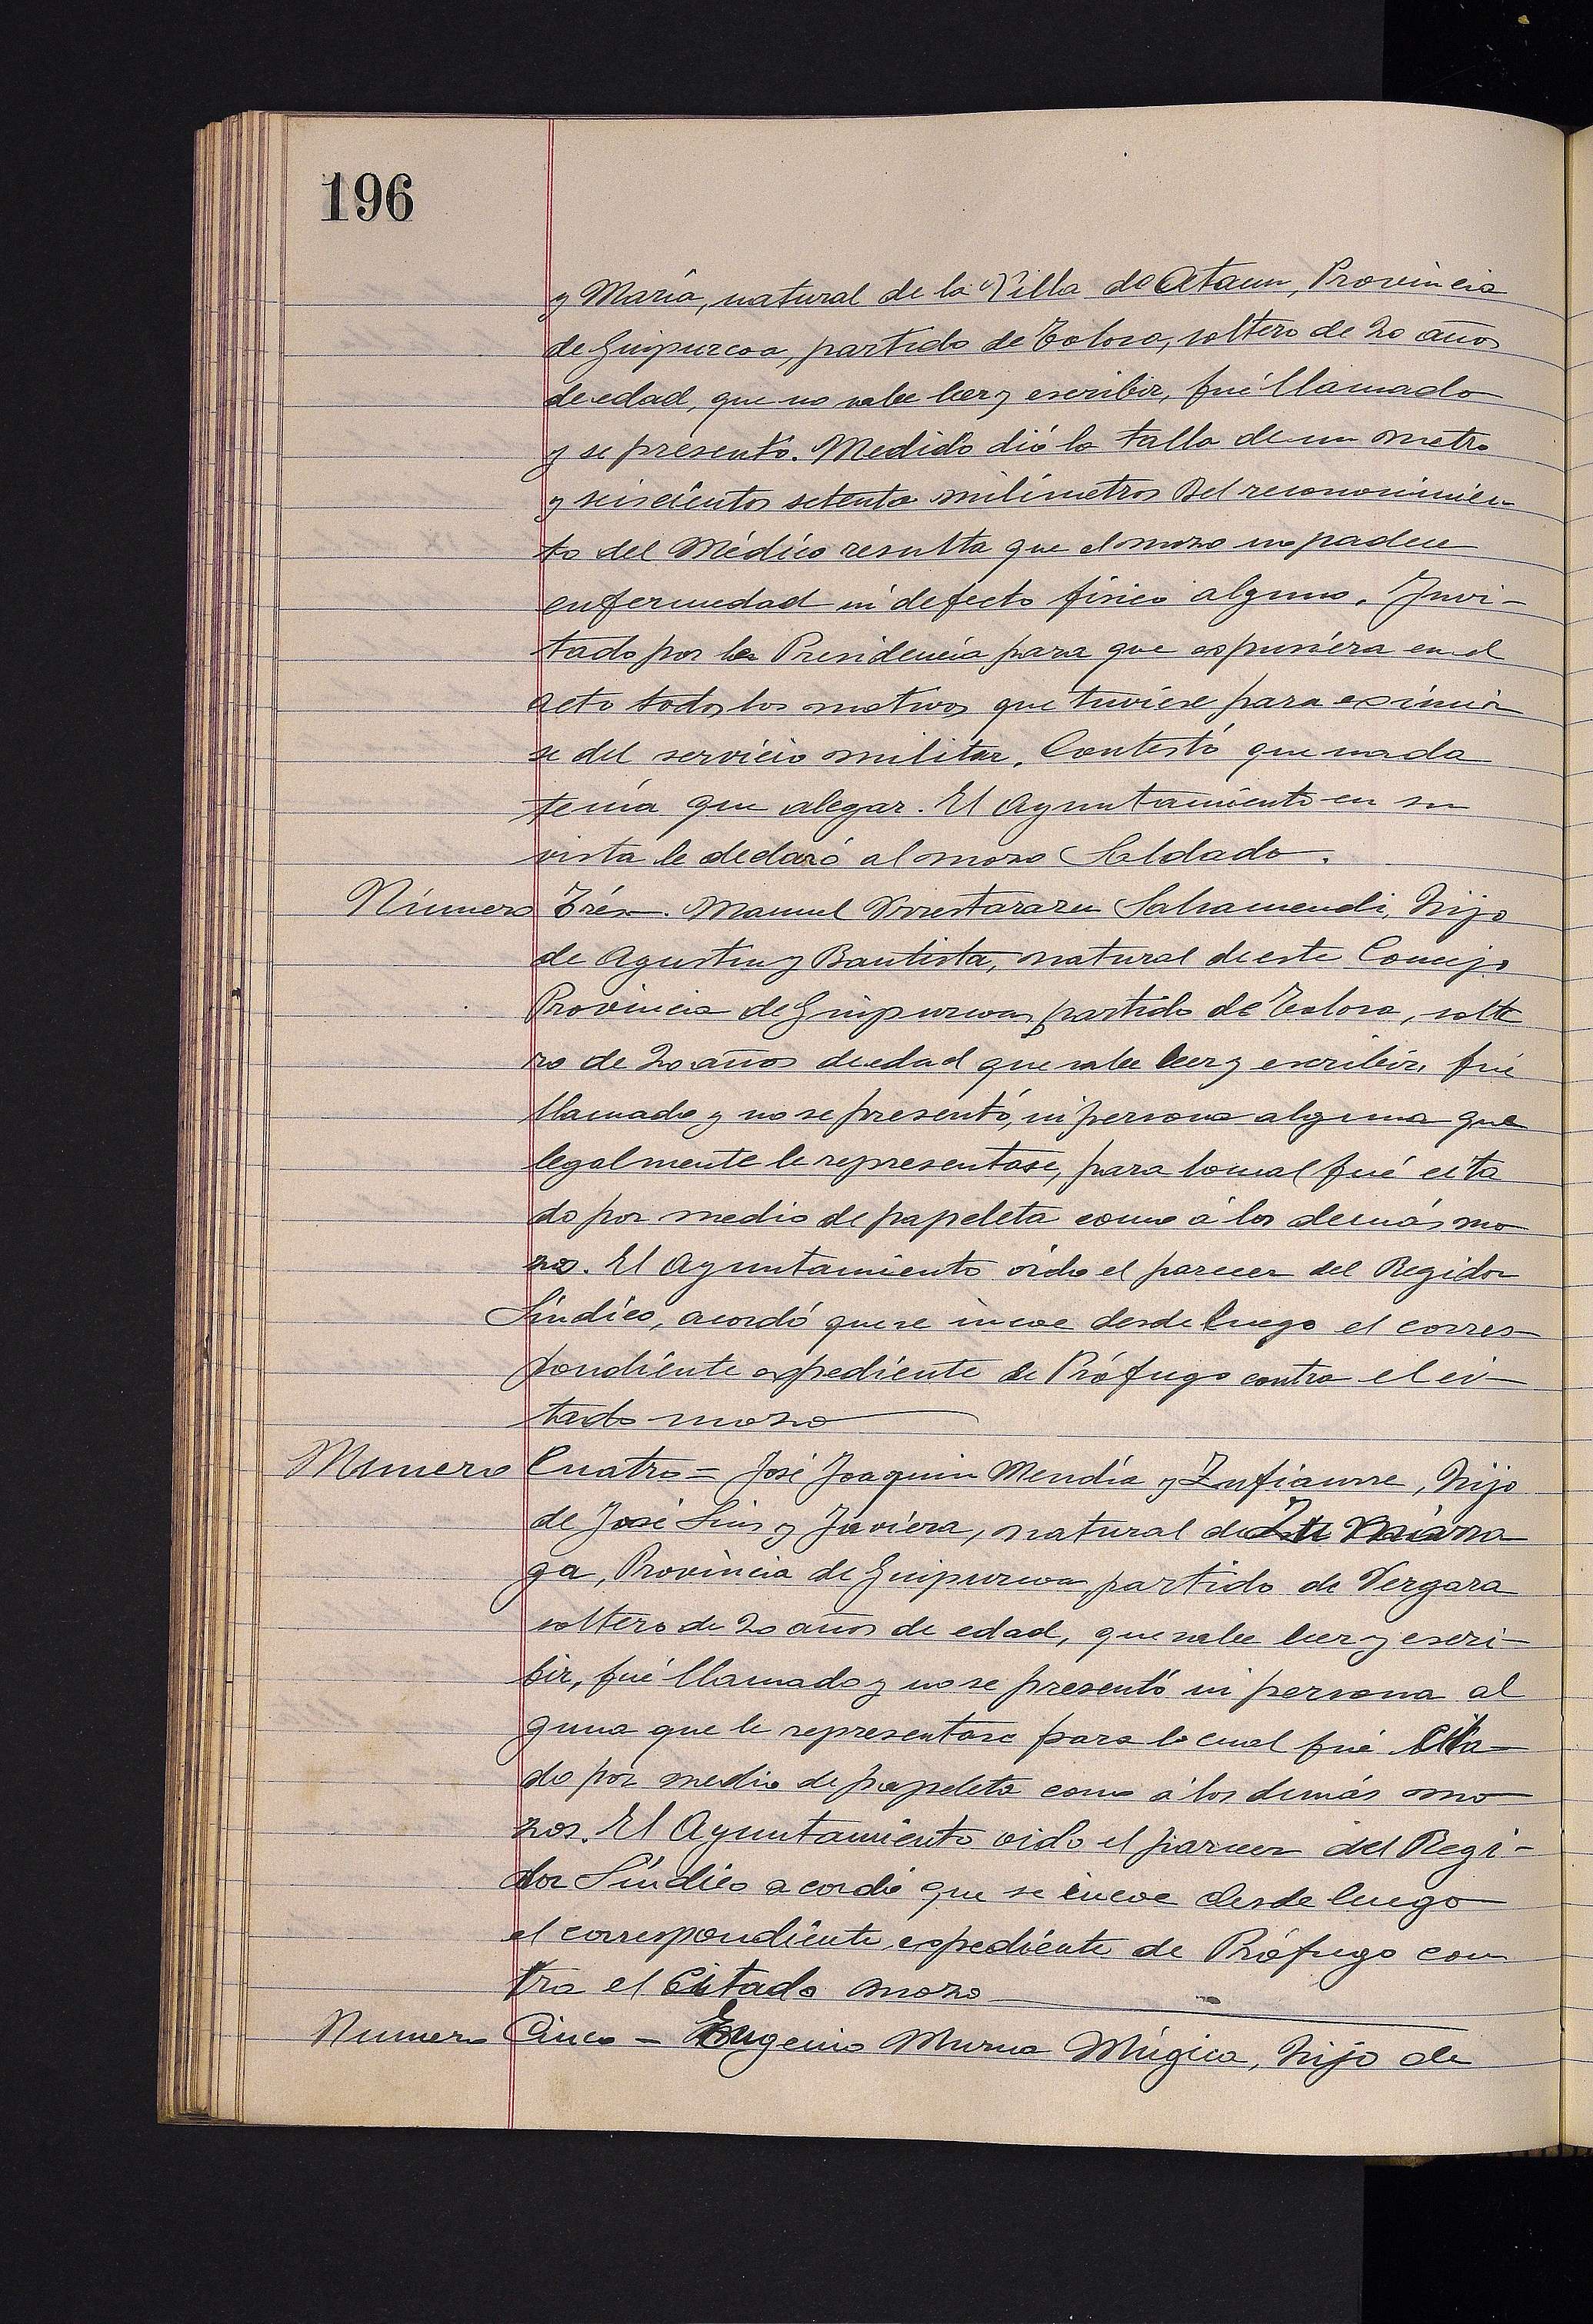 196
y María, natural de la Villa de Ataun, Provincia
de Guipuzcoa, partido de Tolosa, soltero de 20 años
de edad, que no sabe leer y escribir, fué llamado
y se presentó. Medido dió la talla de un metro
y seiscientos setenta milímetros Del reconocimien
to del Médico resulta que el mozo no padece
enfermedad ni defecto físico alguno. Invi-
tado por la Presidencia para que espusiera en el
acto todos los motivos que tuviese para eximir
se del servicio militar. Contestó que nada
tenía que alegar. El Ayuntamiento en su
vista le declaró al mozo Soldado.
Número Trés. Manuel Salsamendi, hijo
de Agustin y Bautista, natural de este Concejo
Provincia de Guipuzcoa, partido de Tolosa, solte
ro de 20 años de edad que sabe leer y escribir, fué
llamado y no se presentó, ni persona alguna que
legalmente le representase, para lo cual fué cita
do por medio de papeleta como á los demás mo
zos. El Ayuntamiento oido el parecer del Regidor
Síndico, acordó que se incoe desde luego el corres-
pondiente espediente de Prófugo contra el ci-
tado mozo
Numero Cuatro = José Joaquin Mendía y Zufiaurre, hijo
de José Luis y Javiera, natural de
ga, Provincia de Guipuzcoa, partido de Vergara
soltero de 20 años de edad, que sabe leer y escri-
bir, fué llamado y no se presentó ni persona al
guna que le representase para lo cual fué cita-
do por medio de papeleta como á los demás mo
zos. El Ayuntamiento oido el parecer del Regi-
dor Síndico acordó que se incoe desde luego
el correspondiente espediente de Prófugo con
tra el Citado mozo
Numero Cinco = Eugenio Murua Múgica, hijo de